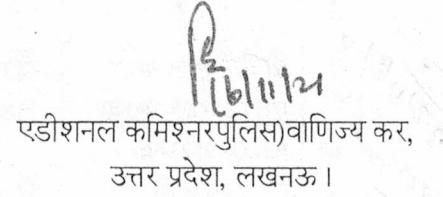 16/11/21
एडीशनल कमिश्नरपुलिस)वाणिज्य कर,
उत्तर प्रदेश, लखनऊ।